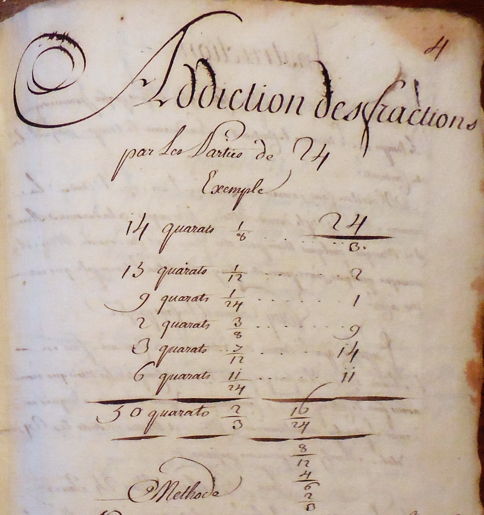 4
Addiction des fractions
par Les Parties de 24
Exemple
14 quarats 1/8 ... 24
3.
15 quarats 1/12 ......... 2
9 quarats 1/24 ......... 1
2 quarats 3/8 ......... 9
3 quarats 7/12 ......... 14
6 quarats 11/24 ......... 11
50 quarats 2/3 16/24
8/12
4/6
2/3
Methode